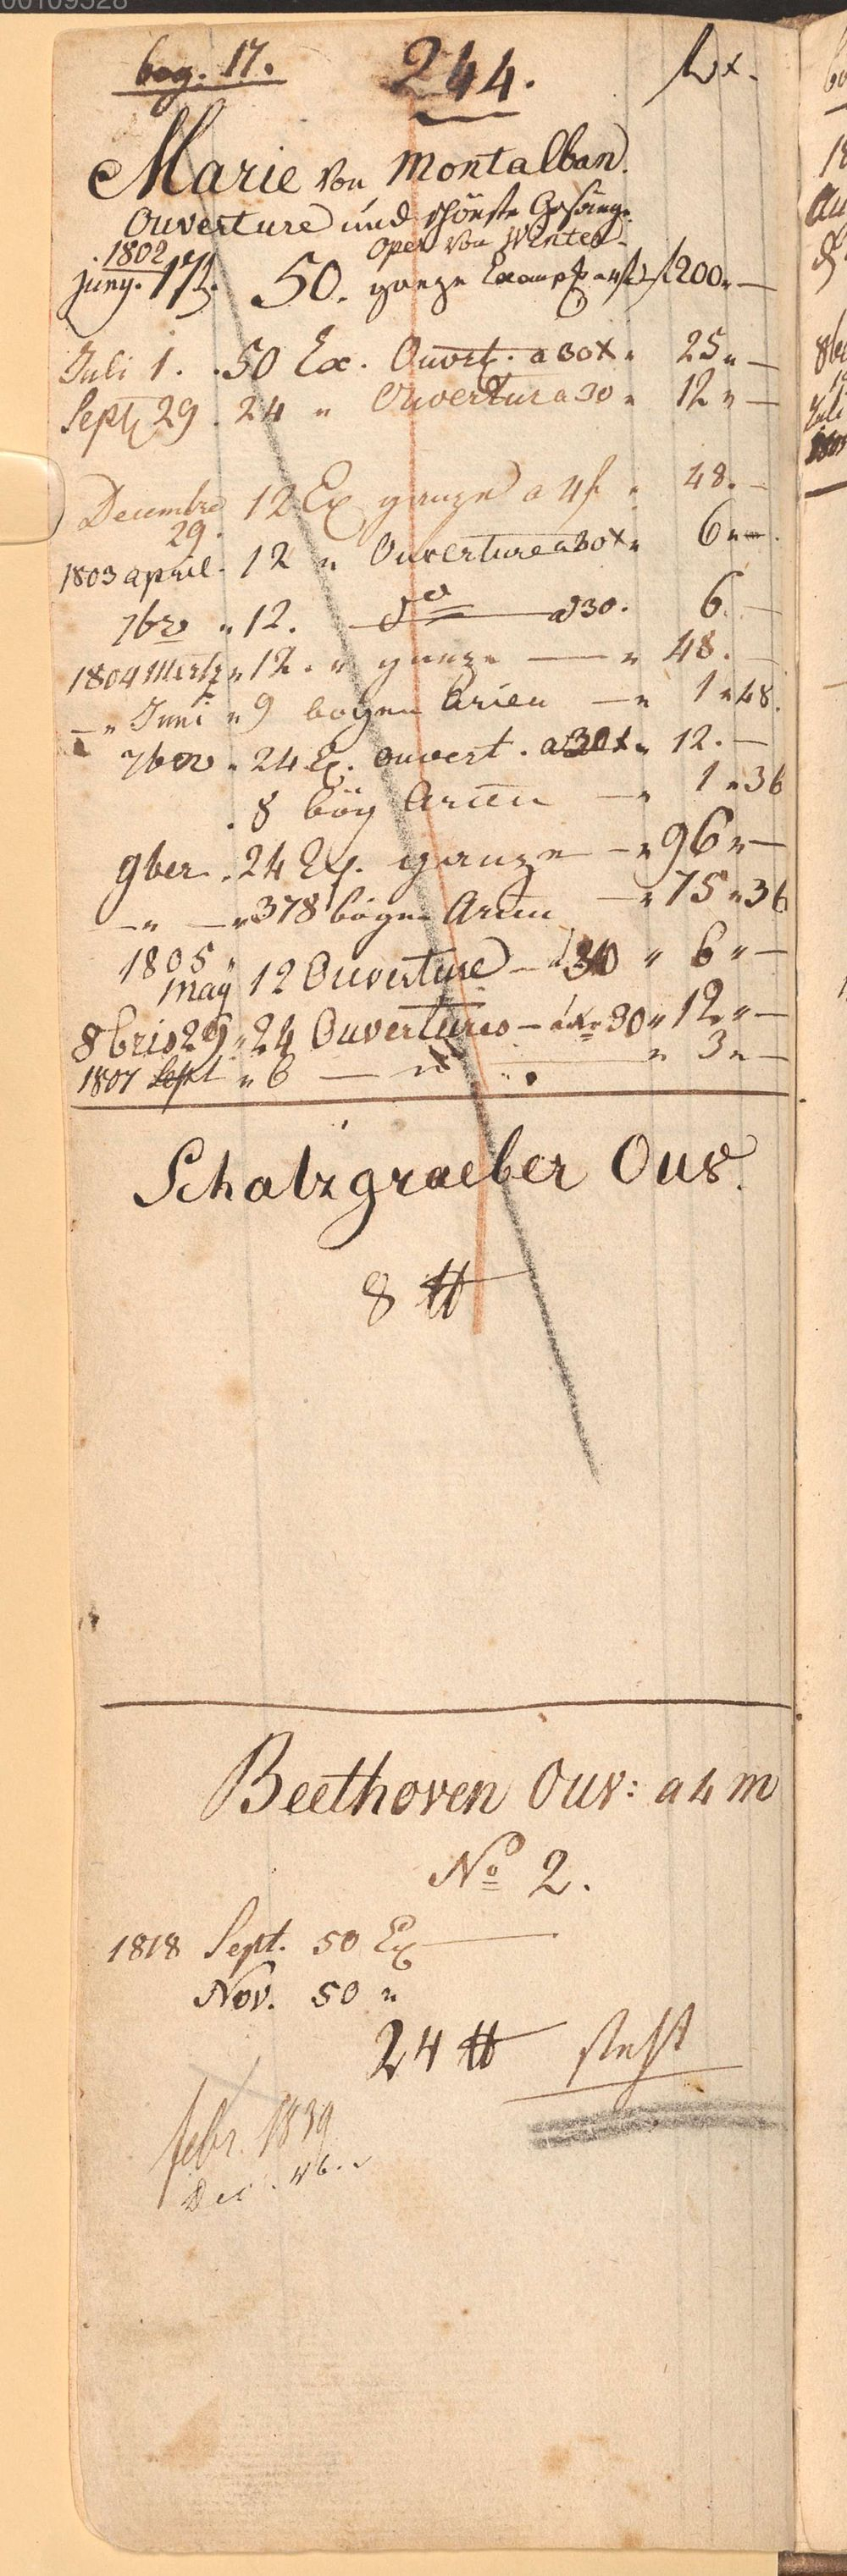 00109528
bog. 17. 244.
Marie von Montalban.
Ouverture und schönste Gesänge.
Oper von Winter.
1802
Juny. 17. 50. ganze Exempl a 4f f 200 " —
Juli 1. . 50 Ex. Ouvert. a 30 x " 25 " —
Sept 29 . 24 " Ouvertur a 30 " 12 " —
Decembre 12 Ex ganze a 4f " 48. —
29.
1803 april. 12 " Ouverture a 30 x " 6 " —
7br " 12. do — a 30. 6. —
1804 Mertz " 12. " ganze — " 48. —
— " Juni " 9 bogen Arien — " 1 " 48.
7ber " 24 Ex. ouvert. a 30 x " 12. —
. 8 bög Arien — " 1 " 36
9ber . 24 Ex. ganze — " 96 " —
— " — " 378 bögen Arien — " 75 " 36
1805 "
May 12 Ouverture — 30 " 6 " —
8bris 29 " 24 Ouvertures — 30 " 12 " —
1807 Sept " 6 — " — " 3 " —
Schatzgraeber Ouv.
8 #
Beethoven Ouv: a 4 m
No 2.
1818 Sept. 50 Ex —
Nov. 50 "
24 # steht
febr. 1839
Dec. 46.